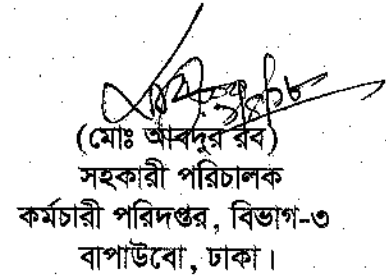 (মোঃ আবদুর রব)
সহকারী পরিচালক
কর্মচারী পরিদপ্তর, বিভাগ-৩
বাপাউবো, ঢাকা।